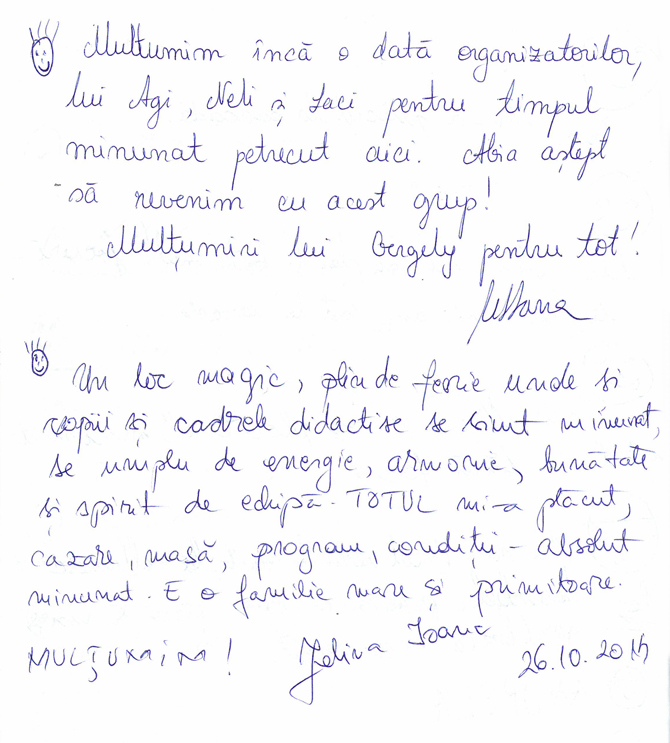 Mulțumim încă o dată organizatorilor,
lui Agi, Neli și Laci pentru timpul
minunat petrecut aici. Abia aștept
să revenim cu acest grup!
Mulțumiri lui Gergely pentru tot!
Un loc magic, plin de ferie unde si
copiii și cadrele didactise se simt minunat,
se umplu de energie, armonie, bunătate
și spirit de echipă. TOTUL mi-a plăcut,
cazare, masă, program, condiții - absolut
minunat. E o familie mare și primitoare.
MULȚUMIM! Ioana
26.10.